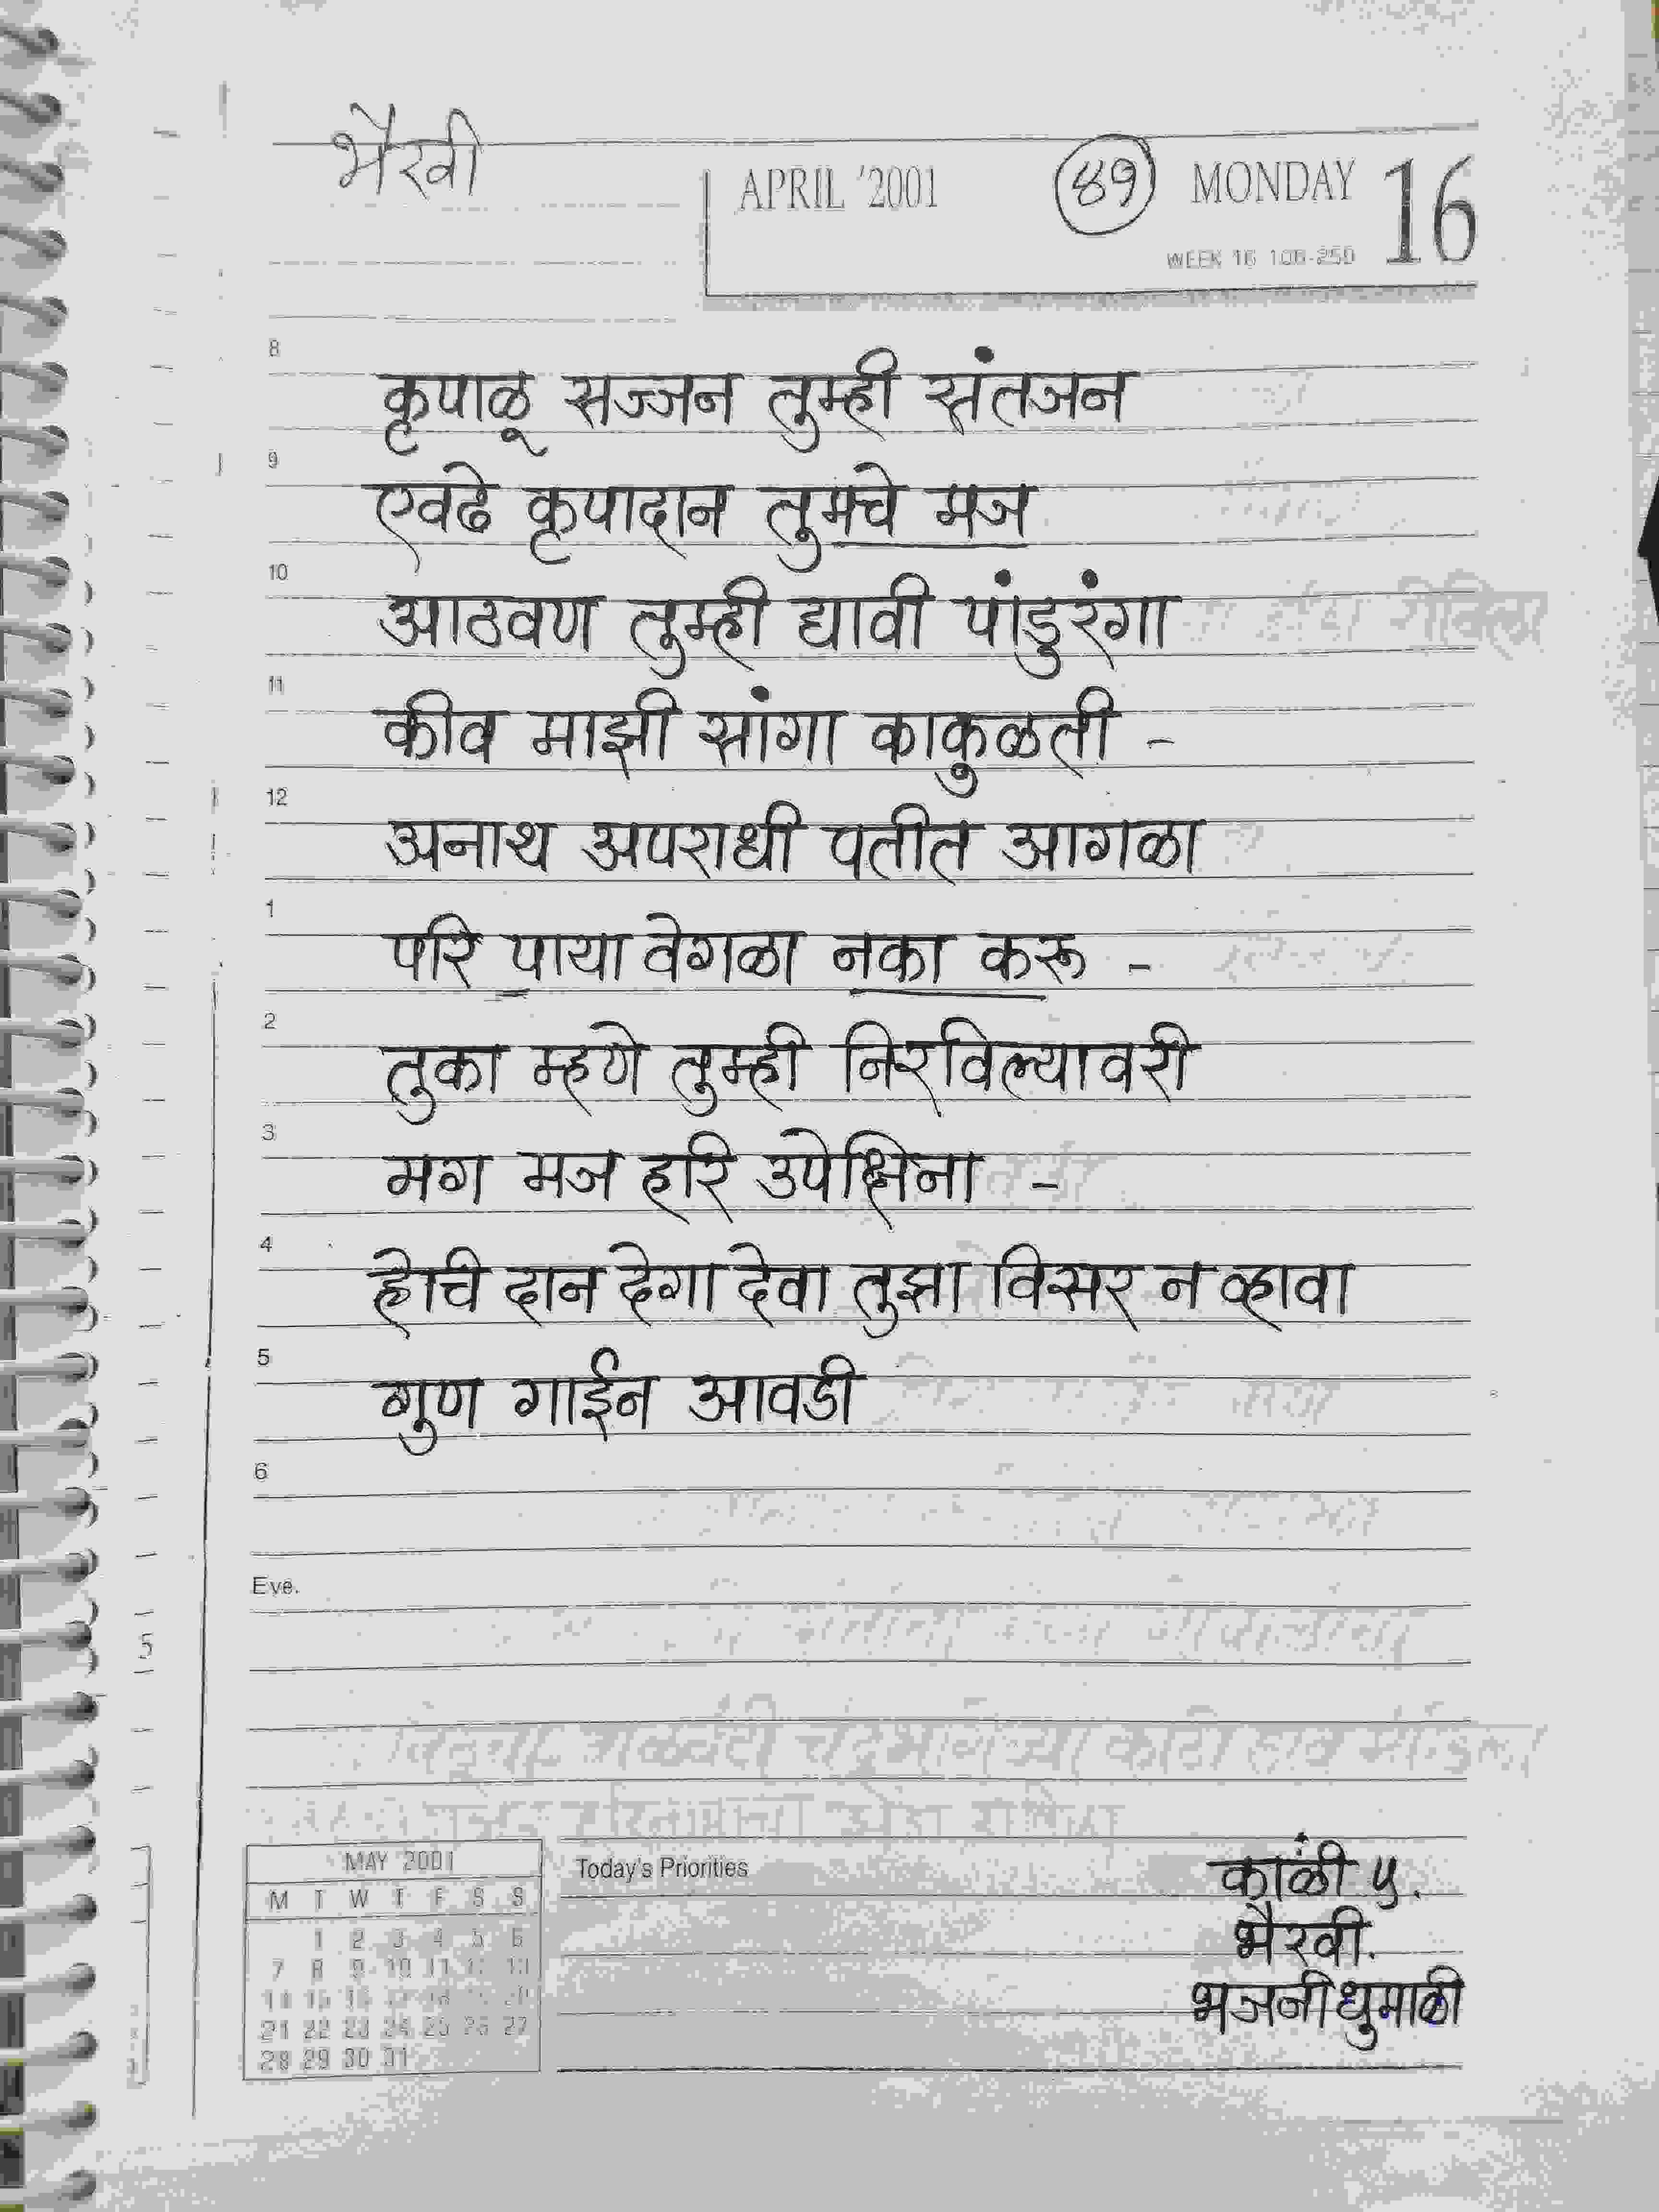 भैरवी
APRIL '2001 ४१ MONDAY 16
WEEK 16 106-259
8
कृपाळू सज्जन तुम्ही संतजन
9
एवढे कृपादान तुमचे मज
10
आठवण तुम्ही द्यावी पांडुरंगा
11
कीव माझी सांगा काकुळती -
12
अनाथ अपराधी पतीत आगळा
1
परि पाया वेगळा नका करू -
2
तुका म्हणे तुम्ही निरविल्यावरी
3
मग मज हरि उपेक्षिना -
4
हेचि दान देगा देवा तुझा विसर न व्हावा
5
गुण गाईन आवडी
6
Eve.
MAY 2001
M T W T F S S
1 2 3 4 5 6
7 8 9 10 11 12 13
21 22 23 24 25 26 27
28 29 30 31
Today's Priorities
काळी ५.
भैरवी.
भजनीधुमाळी